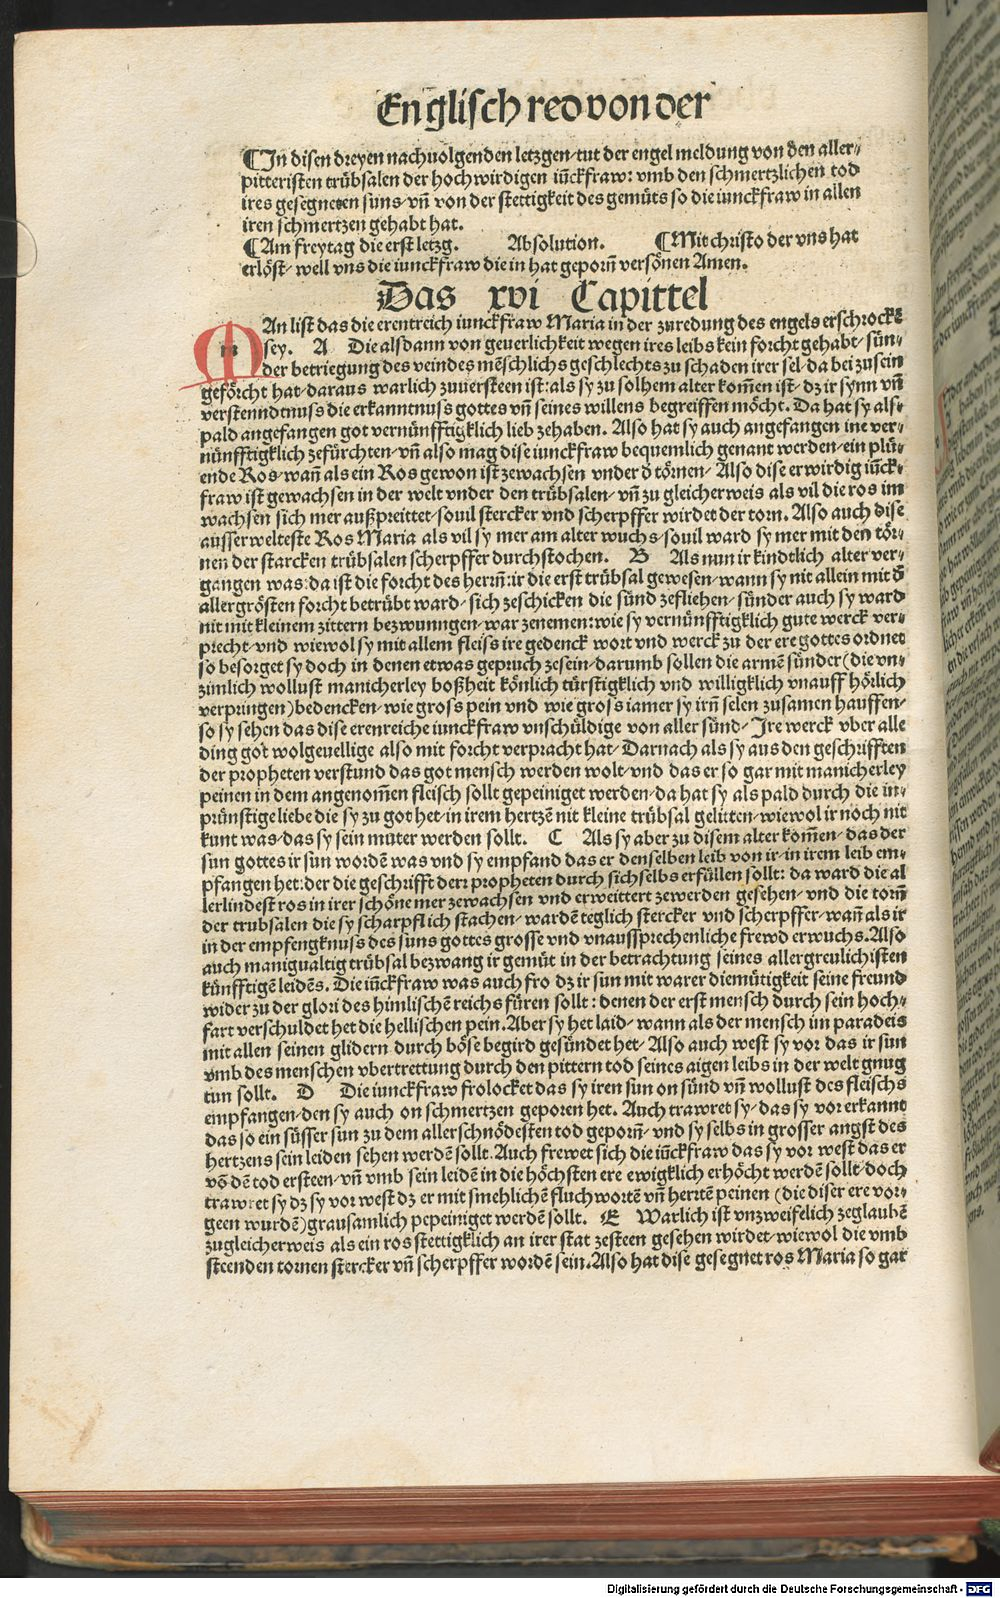 Englisch red von der
¶In disen dreyen nachuolgenden letzgen/ tut der engel meldung von den aller/
pitteristen trübsalen der hochwirdigen iũckfraw: vmb den schmertzlichen tod
ires gesegneten suns/ vñ von der stettigkeit des gemüts so die iunckfraw in allen
iren schmertzen gehabt hat.
¶Am freytag die erst letzg. Absolution. ¶Mit christo der vns hat
erlöst/ well vns die iunckfraw die in hat geporñ versönen Amen.
Das xvi Capittel
MAn list das die erentreich iunckfraw Maria in der zuredung des engels erschrockẽ
sey. A Die alsdann von geuerlichkeit wegen ires leibs kein forcht gehabt/ sün/
der betriegung des veindes mẽschlichs geschlechts zu schaden irer sel/ da bei zu sein
geförcht hat/ daraus warlich zuuersteen ist: als sy zu solhem alter kom̃en ist/ dz ir synn vñ
verstenndtnuss die erkanntnuss gottes vñ seines willens begreiffen möcht. Da hat sy als/
pald angefangen got vernünfftigklich lieb zehaben. Also hat sy auch angefangen ine ver/
nünfftigklich zefürchten/ vñ also mag dise iunckfraw bequemlich genant werden/ ein plü/
ende Ros/ wañ als ein Ros gewon ist zewachsen vnder d̃ törnen/ Also dise erwirdig iũck/
fraw ist gewachsen in der welt vnder den trübsalen/ vñ zu gleicherweis als vil die ros im
wachsen sich mer außpreittet/ souil stercker vnd scherpffer wirdet der torn. Also auch dise
ausserwelteste Ros Maria als vil sy mer am alter wuchs/ souil ward sy mer mit den tör/
nen der starcken trübsalen scherpffer durchstochen. B Als nun ir kindtlich alter ver/
gangen was: da ist die forcht des herrñ: ir die erst trübsal gewesen/ wann sy nit allein mit d̃
allergrösten forcht betrübt ward/ sich zeschicken die sünd zefliehen/ sünder auch sy ward
nit mit kleinem zittern bezwunngen/ war zenemen: wie sy vernünfftigklich gute werck ver/
precht/ vnd wiewol sy mit allem fleiss ire gedenck wort vnd werck zu der ere gottes ordnet
so besorget sy doch in denen etwas gepruch zesein/ darumb sollen die armẽ sünder (die vn/
zimlich wollust manicherley boßheit könlich türstigklich vnd willigklich vnauff hörlich
verpringen) bedencken/ wie gross pein vnd wie gross iamer sy irñ selen zusamen hauffen/
so sy sehen das dise erenreiche iunckfraw vnschüldige von aller sünd/ Jre werck vber alle
ding got wolgeuellige also mit forcht verpracht hat/ Darnach als sy aus den geschrifften
der propheten verstund das got mensch werden wolt/ vnd das er so gar mit manicherley
peinen in dem angenom̃en fleisch sollt gepeiniget werden/ da hat sy als pald durch die in/
prünstige liebe die sy zu got het/ in irem hertzẽ nit kleine trübsal gelitten/ wiewol ir noch nit
kunt was/ das sy sein muter werden sollt. C Als sy aber zu disem alter kom̃en/ das der
sun gottes ir sun wordẽ was vnd sy empfand das er denselben leib von ir/ in irem leib em/
pfangen het: der die geschrifft der propheten durch sich selbs erfüllen sollt: da ward die al
lerlindest ros in irer schöne mer zewachsen vnd erweittert zewerden gesehen/ vnd die torñ
der trubsalen die sy scharpflich stachen/ wardẽ teglich stercker vnd scherpffer/ wañ als ir
in der empfengknuss des suns gottes grosse vnd vnaussprechenliche frewd erwuchs. Also
auch manigualtig trübsal bezwang ir gemüt in der betrachtung seines allergreulichisten
künfftigẽ leidẽs. Die iũckfraw was auch fro dz ir sun mit warer diemütigkeit seine freund
wider zu der glori des himlischẽ reichs füren sollt: denen der erst mensch durch sein hoch/
fart verschuldet het die hellischen pein. Aber sy het laid/ wann als der mensch im paradeis
mit allen seinen glidern durch böse begird gesündet het/ Also auch west sy vor das ir sun
vmb des menschen vbertrettung durch den pittern tod seines aigen leibs in der welt gnug
tun sollt. D Die iunckfraw frolocket das sy iren sun on sünd vñ wollust des fleischs
empfangen/ den sy auch on schmertzen geporen het. Auch trawret sy/ das sy vor erkannt
das so ein süsser sun zu dem aller schnödesten tod geporñ/ vnd sy selbs in grosser angst des
hertzens sein leiden sehen werdẽ sollt. Auch frewet sich die iũckfraw das sy vor west das er
võ dẽ tod ersteen/ vñ vmb sein leidẽ in die höchsten ere ewigklich erhöcht werdẽ sollt/ doch
trawret sy dz sy vor west dz er mit smehlichẽ fluchwortẽ vñ herrtẽ peinen (die diser ere vor/
geen wurdẽ) grausamlich pepeiniget werdẽ sollt. E Warlich ist vnzweifelich zeglaubẽ
zugleicherweis als ein ros stettigklich an irer stat zesteen gesehen wirdet/ wiewol die vmb
steenden tornen stercker vñ scherpffer wordẽ sein. Also hat dise gesegnet ros Maria so gar
Digitalisierung gefördert durch die Deutsche Forschungsgemeinschaft - DFG